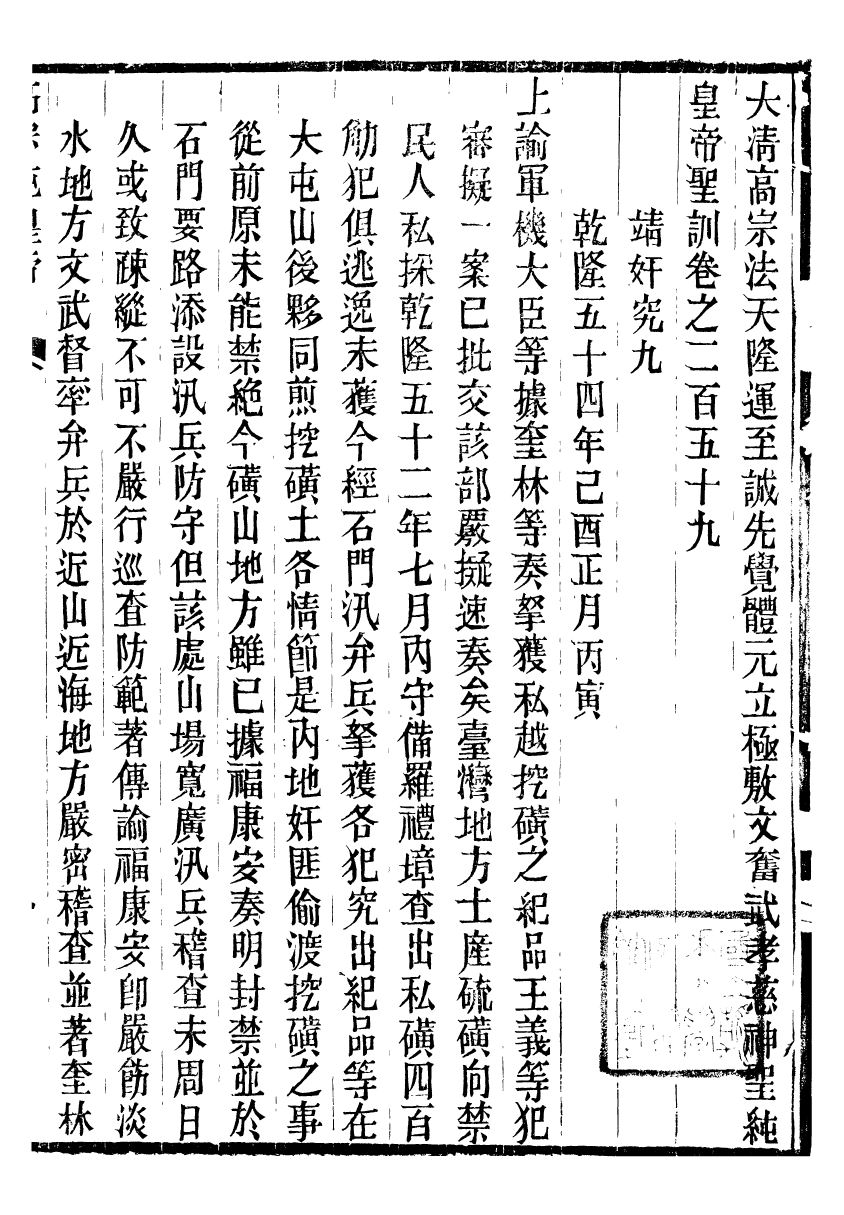 大清高宗法天隆運至誠先覺體元立極敷文奮武孝慈神聖純
皇帝聖訓卷之二百五十九
靖奸宄九
乾隆五十四年己酉正月丙寅
上諭軍機大臣等據奎林等奏拏獲私越挖磺之紀品王義等犯
審擬一案已批交該部嚴擬速奏矣臺灣地方土產硫磺向禁
民人私採乾隆五十二年七月內守備羅禮璋查出私磺四百
觔犯俱逃逸未獲今經石門汛弁兵拏獲各犯究出紀品等在
大屯山後夥同煎挖磺土各情節是內地奸匪偷渡挖磺之事
從前原未能禁絶今磺山地方雖已據福康安奏明封禁並於
石門要路添設汛兵防守但該處山場寬廣汛兵稽查未周日
久或致疎縱不可不嚴行巡查防範著傳諭福康安卽嚴飭淡
水地方文武督率弁兵於近山近海地方嚴密稽查並著奎林